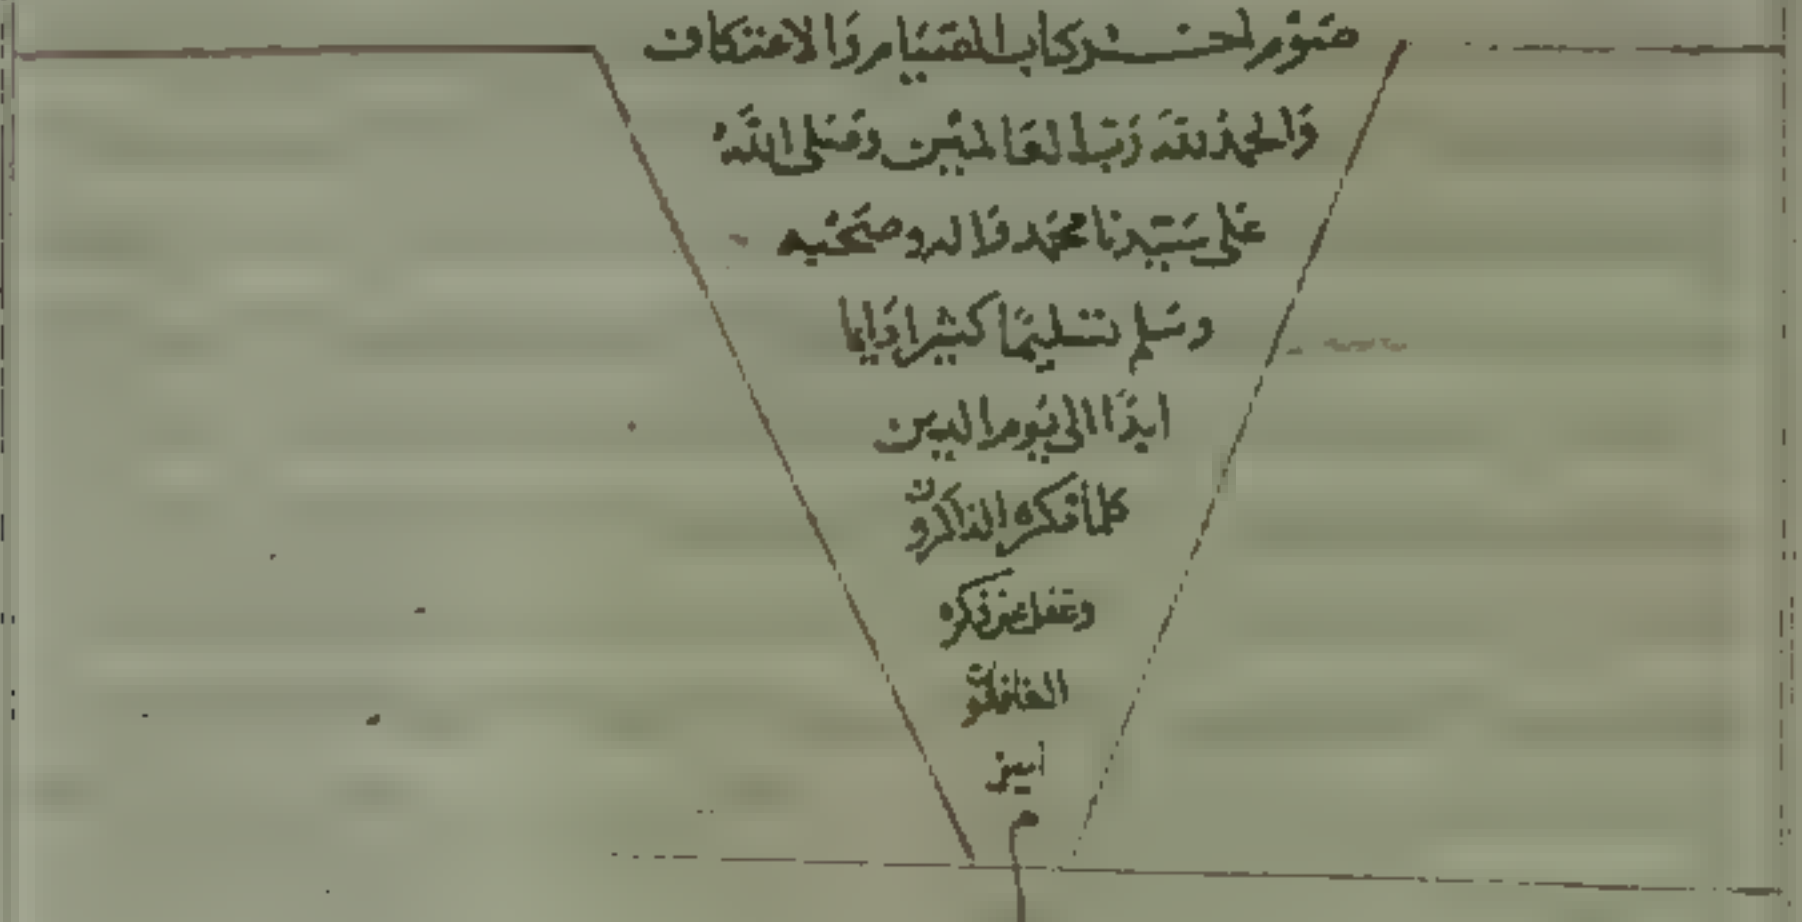 صَوْم اخـــر كتاب الصّيَام وَالاعتكاف
وَالحمدُ للهِ رَبّ العَالميْن وَصَلى اللهُ
عَلى سَيّدنا محمّد وَاله وصَحْبه
وسَلم تسْليمًا كثيرا دَايما
ابدًا الى يَوم الدين
كلما ذكره الذاكرون
وغفل عن ذكره
الغافلون
امين
م